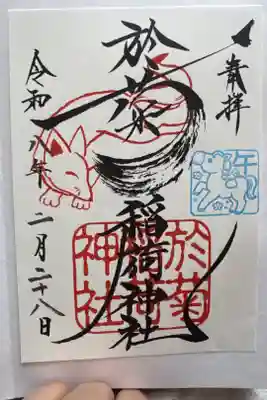 奉拝
於菊
稲荷神社
令和八年 二月二十八日
午
於菊
稲荷
神社